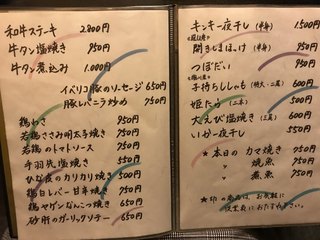 和牛ステーキ 2,800円
牛タン塩焼き 950円
牛タン煮込み 1,000円
イベリコ豚のソーセージ 650円
豚レバニラ炒め 750円
鶏わさ 950円
若鶏ささみ明太焼き 750円
若鶏のトマトソース 750円
手羽先塩焼き 550円
ひな皮のカリカリ焼き 500円
鶏白レバー甘辛焼き 750円
鶏ヤゲンなんこつ焼き 650円
砂肝のガーリックソテー 650円
キンキ一夜干し (半身) 1,500円
開きしまほっけ (半身) 950円
つぼだい 950円
子持ちししゃも (特大・二尾) 600円
姫たら (二本) 500円
大えび塩焼き (二尾) 600円
いか一夜干し 550円
★ 本日の カマ焼き 750円
〃 焼魚 750円
〃 煮魚 750円
★印の商品は、お気軽に
従業員におたずね下さい。